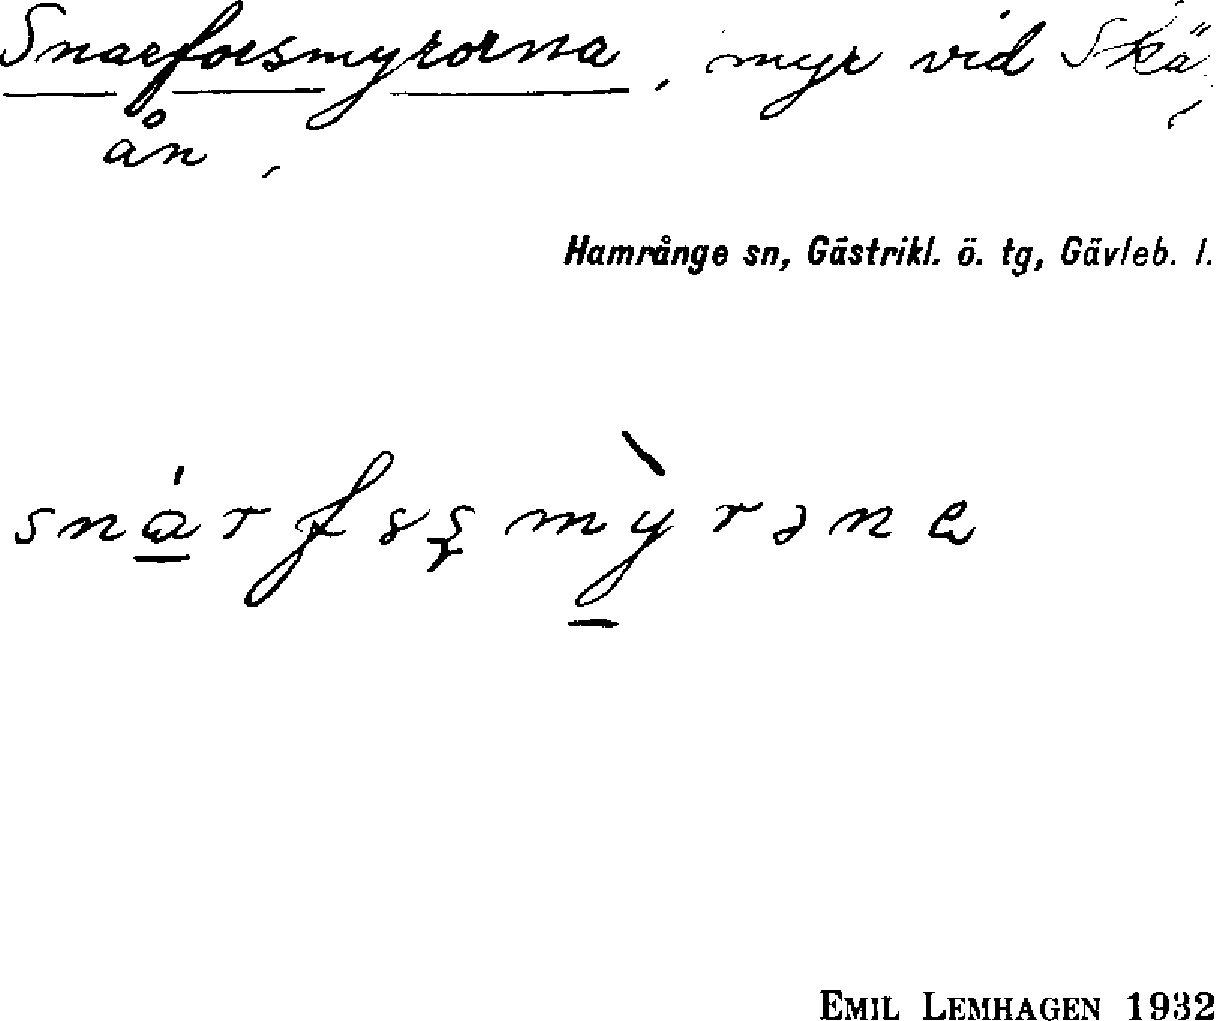 Snarforsmyrorna, myr vid Skä,
ån,
Hamrånge sn, Gästrikl. ö. tg, Gävleb. l.
EMIL LEMHAGEN 1932